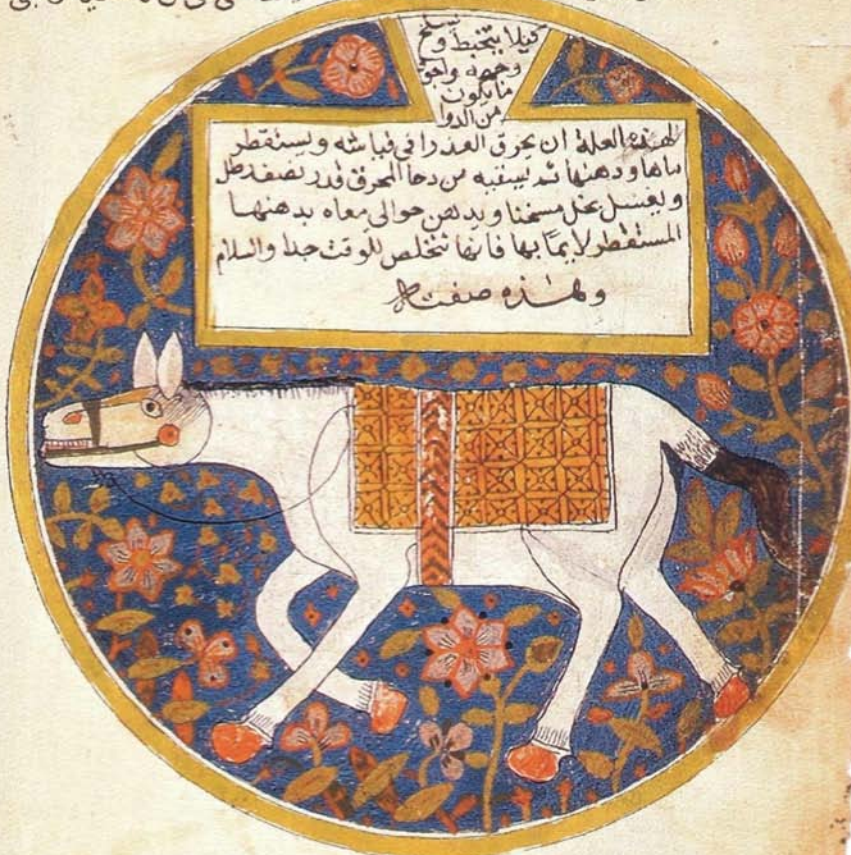 كيلا يتخبط ويسلخ
وجهه واجود
ما يكون
من الدوا
لهذه العلة ان يحرق العذرا في قباشه ويستقطر
ماها ودهنها ثم يسقيه من دحا المحرق قدر نصف رطل
ويغسل بخل مسخنا ويدهن حوالي معاه بدهنها
المستقطر لايما بها فانها تتخلص للوقت جدا والسلام
ولهذه صفتها